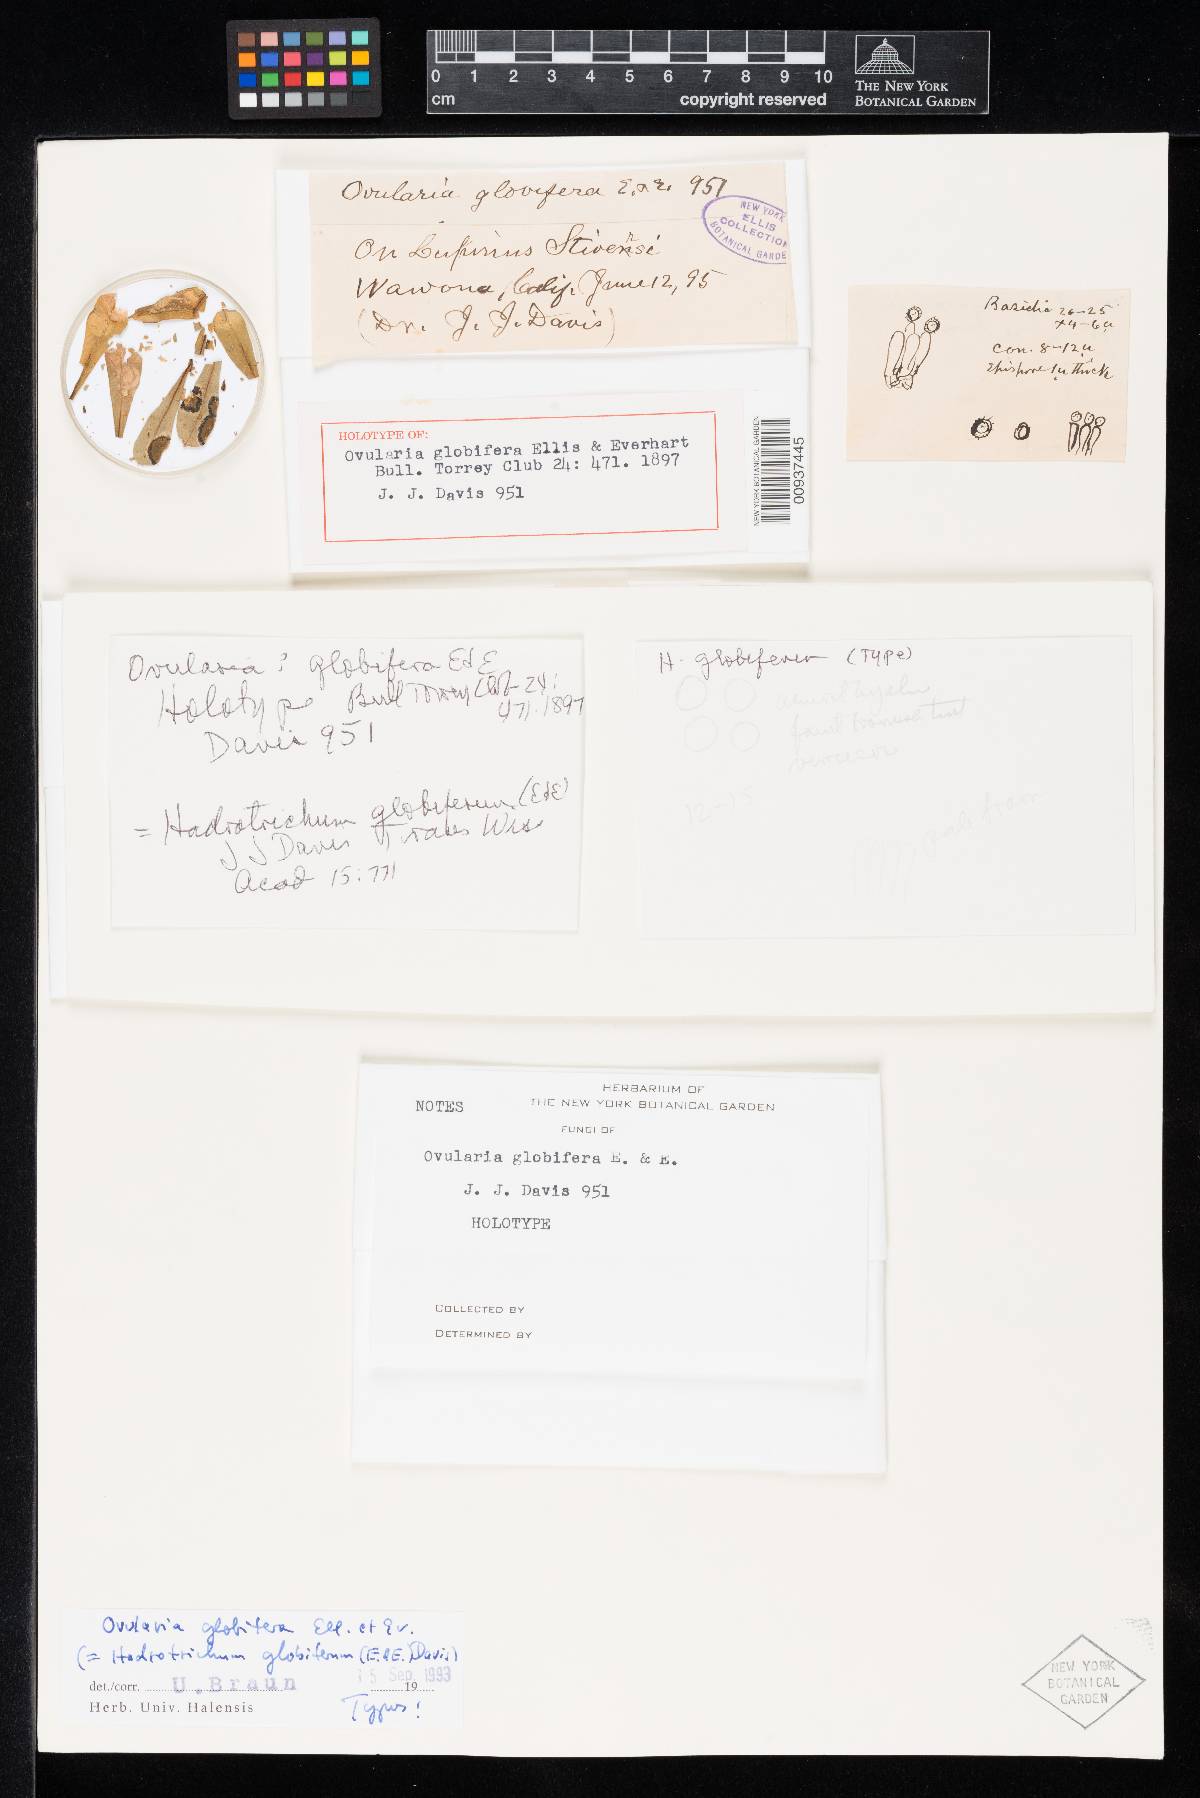 0 1 2 3 4 5 6 7 8 9 10
cm
copyright reserved
THE NEW YORK
BOTANICAL GARDEN
Ovularia globifera E. & E. 951
On Lupinus Stivensi
Wawona, Calif. June 12, 95
(Dr. J. J. Davis)
NEW YORK
ELLIS
COLLECTION
BOTANICAL GARDE
HOLOTYPE OF:
Ovularia globifera Ellis & Everhart
Bull. Torrey Club 24: 471. 1897
J. J. Davis 951
NEW YORK BOTANICAL GARDEN
00937445
Basidia 20-25
x 4-6µ
Con. 8-12µ
Epispore 1µ thick
Ovularia ? globifera E & E
Holotype Bull Torrey Club 24:
471. 1897
Davis 951
= Hadrotrichum globiferum (E&E)
J J Davis Trans Wis
Acad 15: 771
H. globiferum (Type)
12-15
HERBARIUM OF
THE NEW YORK BOTANICAL GARDEN
NOTES
FUNGI OF
Ovularia globifera E. & E.
J. J. Davis 951
HOLOTYPE
COLLECTED BY
DETERMINED BY
Ovularia globifera Ell. et Ev.
(= Hadrotrichum globiferum (E. & E.) Davis)
det./corr. U. Braun 15 Sep. 1993
19
Herb. Univ. Halensis Typus!
NEW YORK
BOTANICAL
GARDEN